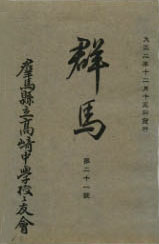 大正二年十二月十五日發行
群馬
第二十一號
群馬縣立高崎中學校々友會